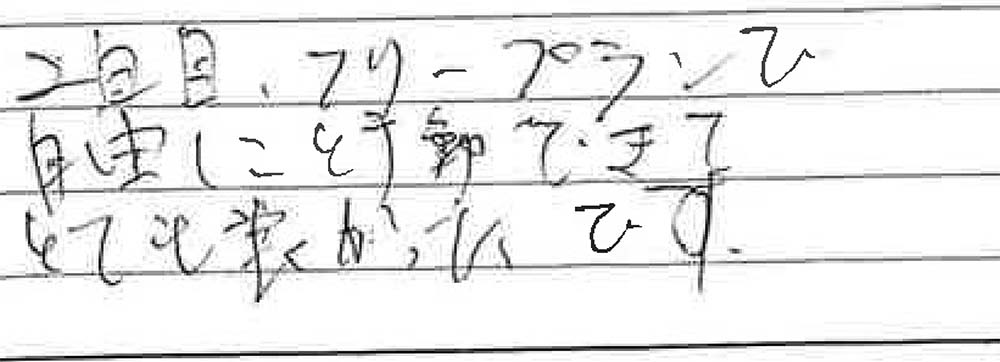 二日目、フリープランで
自由に行動できて
とても楽しかったです。